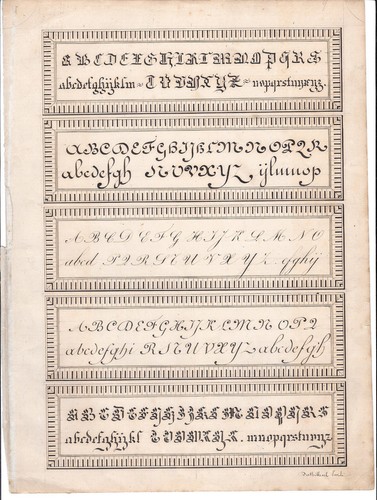 A B C D E F G H I K L M N O P Q R S
abcdefghijklm = T U V W X Y Z = nopqrstuvxyz.
A B C D E F G H I J K L M N O P Q R
abcdefgh S T U V X Y Z ijlmnop
A B C D E F G H I J K L M N O
abcd P Q R S T U V X Y Z . gghij
A B C D E F G H I J K L M N O P Q
abcdefghi R S T U V X Y Z abcdefgh
A B C D E F G H I J K L M N O P Q R S
abcdefghijkl T U V W X Y Z . mnopqrstuvxyz